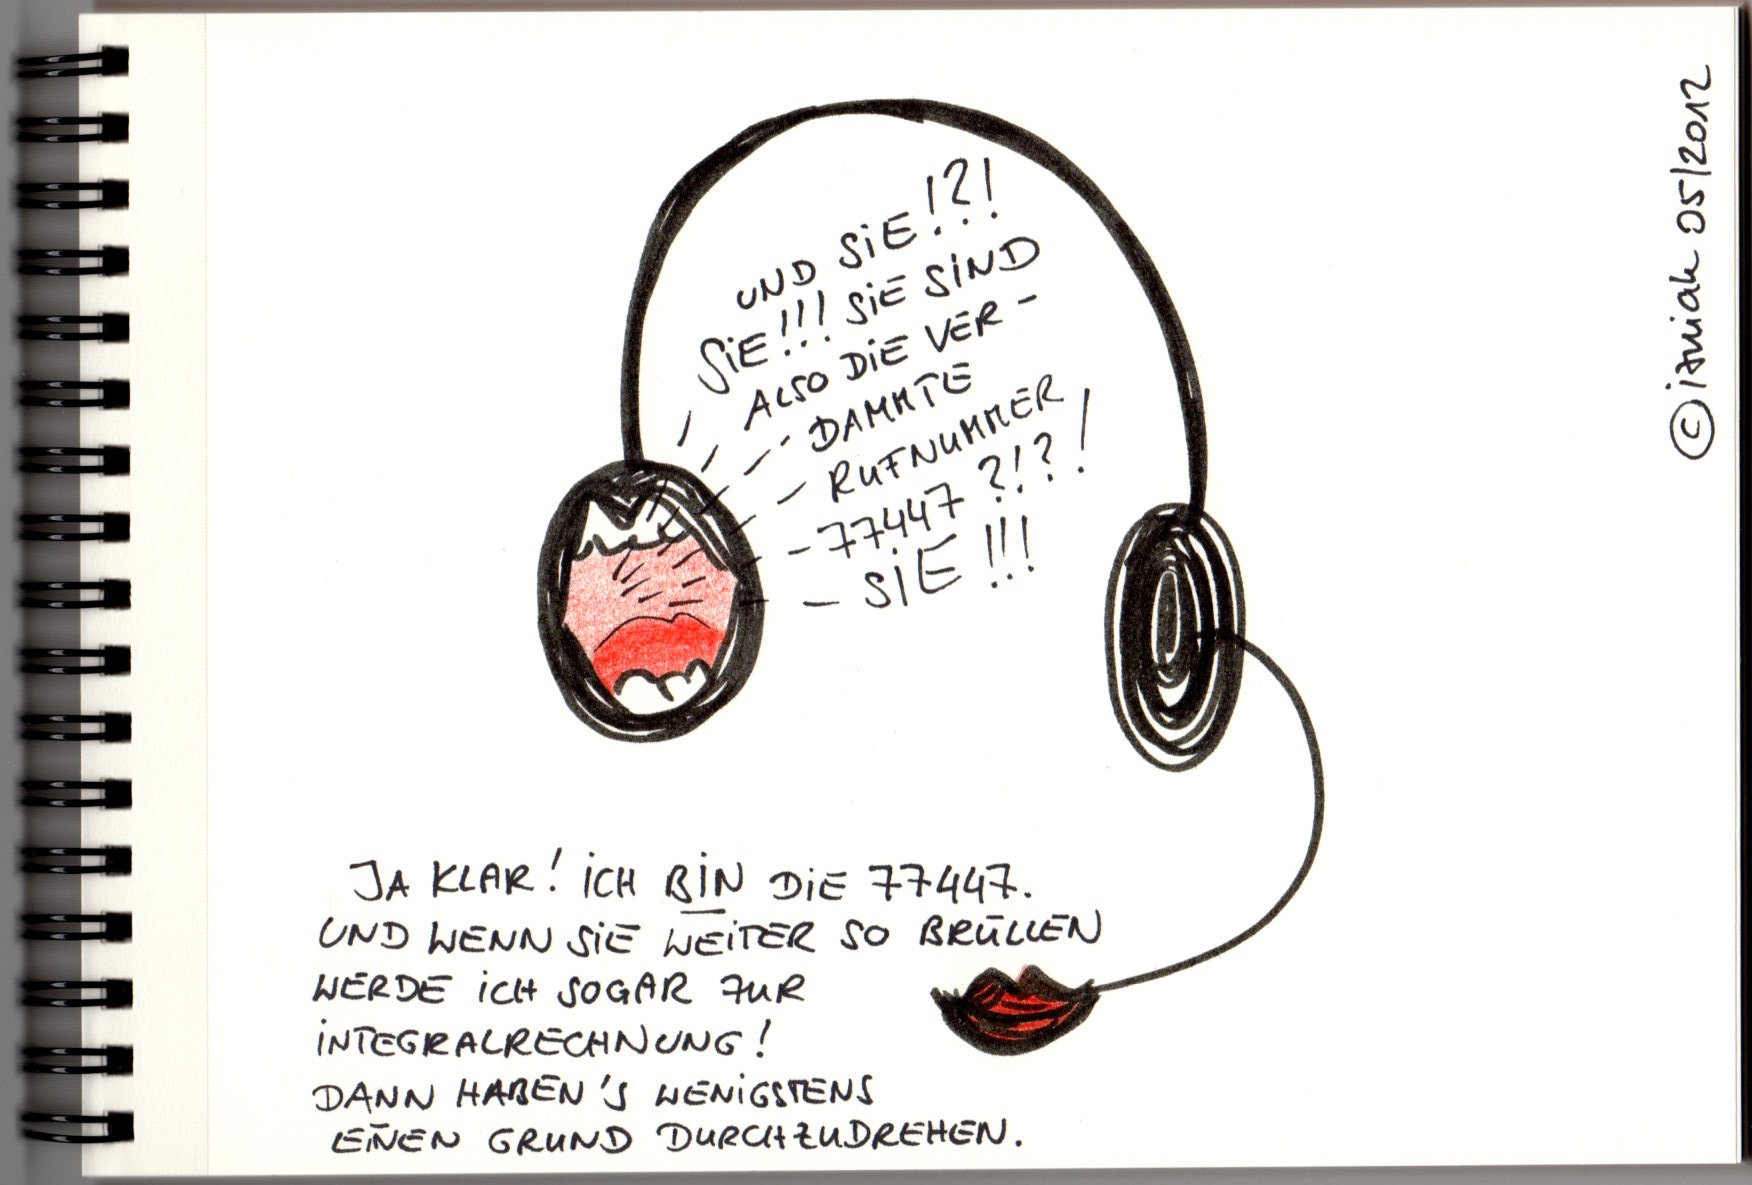 UND SIE!?!
SIE!!! SIE SIND
ALSO DIE VER-
DAMMTE
RUFNUMMER
77447?!?!
SIE!!!
JA KLAR! ICH BIN DIE 77447.
UND WENN SIE WEITER SO BRÜLLEN
WERDE ICH SOGAR ZUR
INTEGRALRECHNUNG!
DANN HABEN'S WENIGSTENS
EINEN GRUND DURCHZUDREHEN.
05/2012